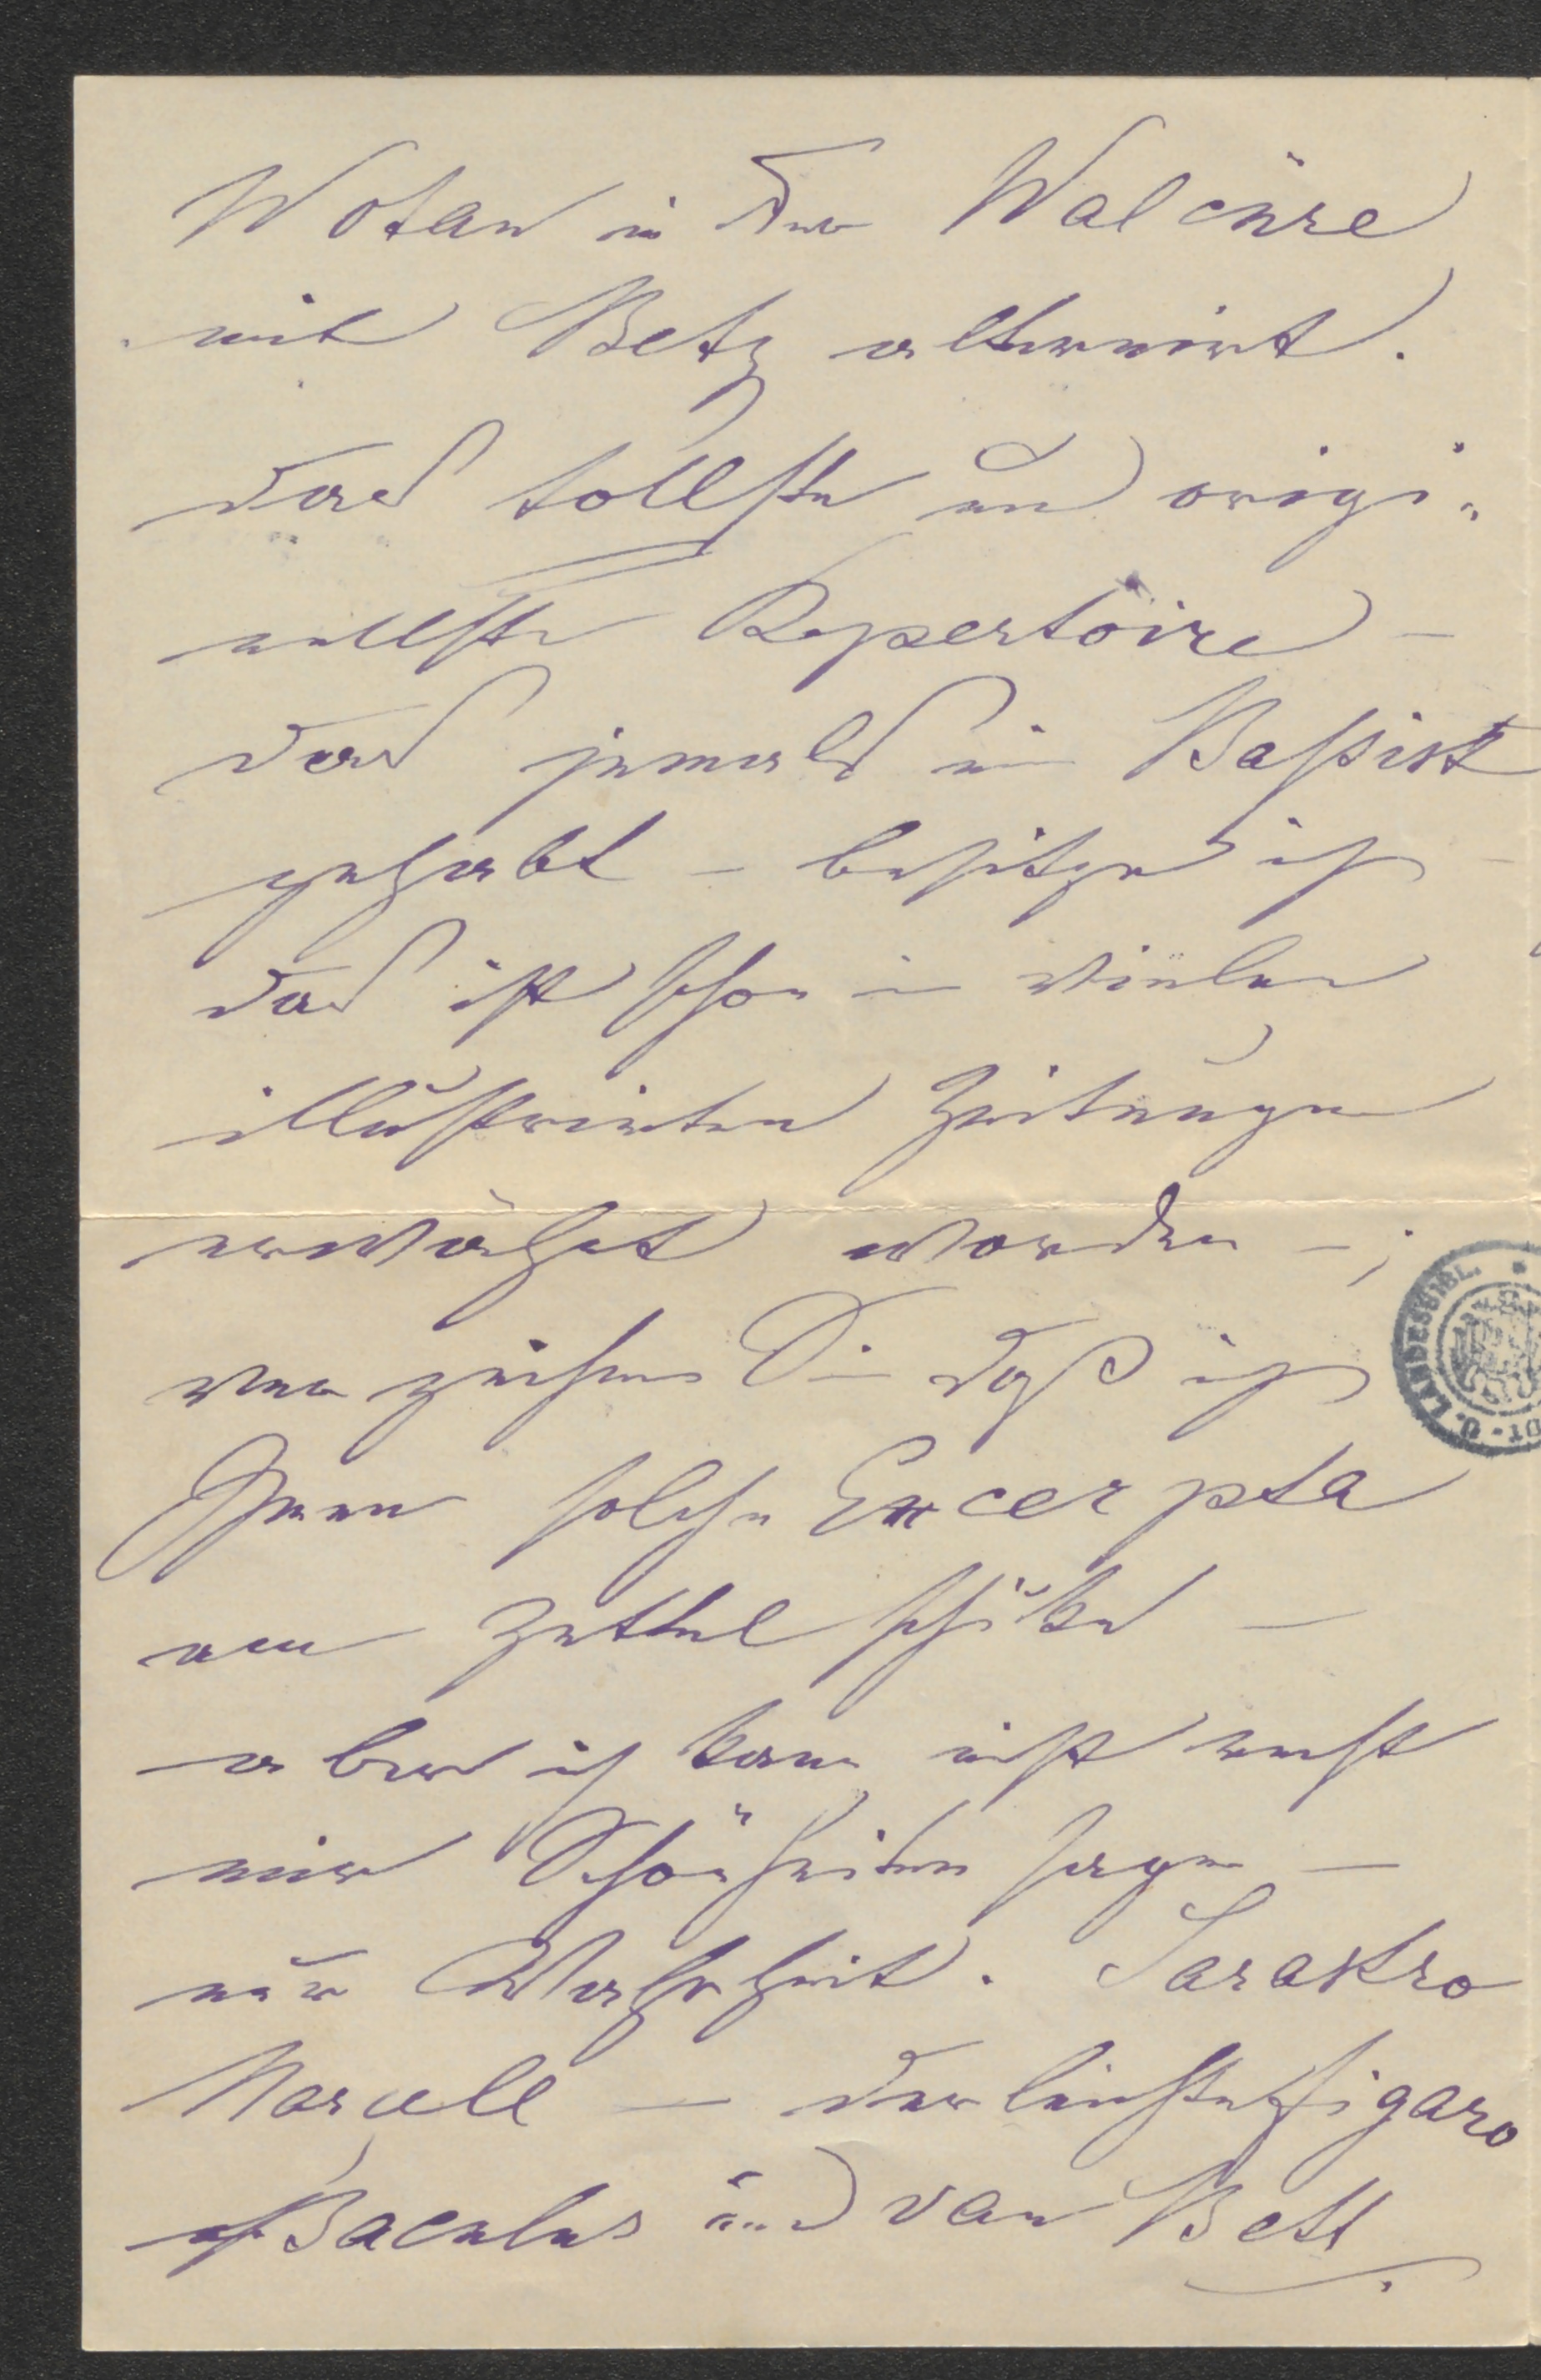 Wotan in der Walcüre
mit Betz alternirt.
Das tollste und origi-
nellste Repertoire –
das jemals ein Bassist
gehabt – besitze ich –
das ist schon in vielen
illustrirten Zeitungen
erwähnt worden –;
verzeihen Sie daß ich
Ihnen solche Excerpta
am Zettel schicke –
aber ich kann nicht recht
mir Schönheiten sagen –
nur Wahrheit. Sarastro
Marcell – der leichte Figaro
Baculus und van Bett.
U. LANDESBIBL.